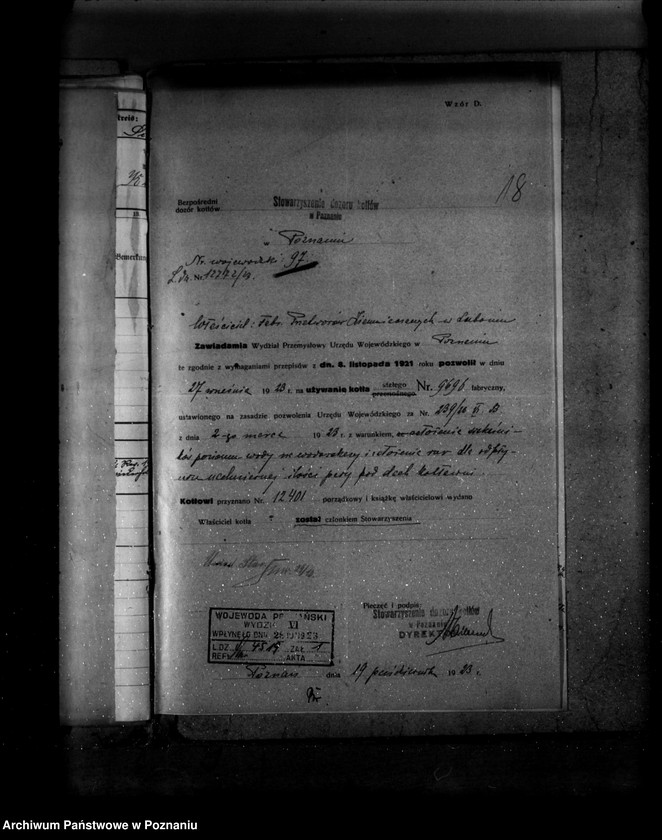 Wzór D.
18
Bezpośredni
dozór kotłów
Stowarzyszenie dozoru kotłów
w Poznaniu
w Poznaniu
Nr. wojewódzki 97
L. dz. Nr. 12272/23.
Właściciel: Fabr. Przetworów Ziemniaczanych w Luboniu
Zawiadamia Wydział Przemysłowy Urzędu Wojewódzkiego w Poznaniu
że zgodnie z wymaganiami przepisów z dn. 8. listopada 1921 roku pozwolił w dniu
27 września 1923 r. na używanie kotła stałego Nr. 9696 fabryczny,
przenośnego
ustawionego na zasadzie pozwolenia Urzędu Wojewódzkiego za Nr. 239/23 VI B
z dnia 2-go marca 1923 r. z warunkiem,
poziomu wody
ilości pary pod dach kotłowni.
Kotłowi przyznano Nr. 12401 porządkowy i książkę właścicielowi wydano
Właściciel kotła został członkiem Stowarzyszenia
WOJEWODA POZNAŃSKI
WYDZIAŁ VI
WPŁYNĘŁO DNIA
L.DZ. 4515 ZAŁ. 1
REF. AKTA
Pieczęć i podpis:
Stowarzyszenie dozoru kotłów
w Poznaniu
DYREKTOR
Poznań dnia 19 października 1923 r.
Bemerkung
Archiwum Państwowe w Poznaniu